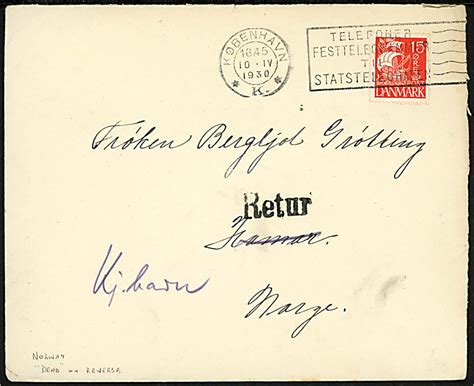 KØBENHAVN
1845
10-IV
1930
* K. *
TELEFONER
FESTTELEGR
TIL
STATSTELEGR
15
DANMARK
Frøken Bergljot Grötting
Retur
Hamar.
Kj.havn
Norge.
NORWAY
"DEAD" ON REVERSE